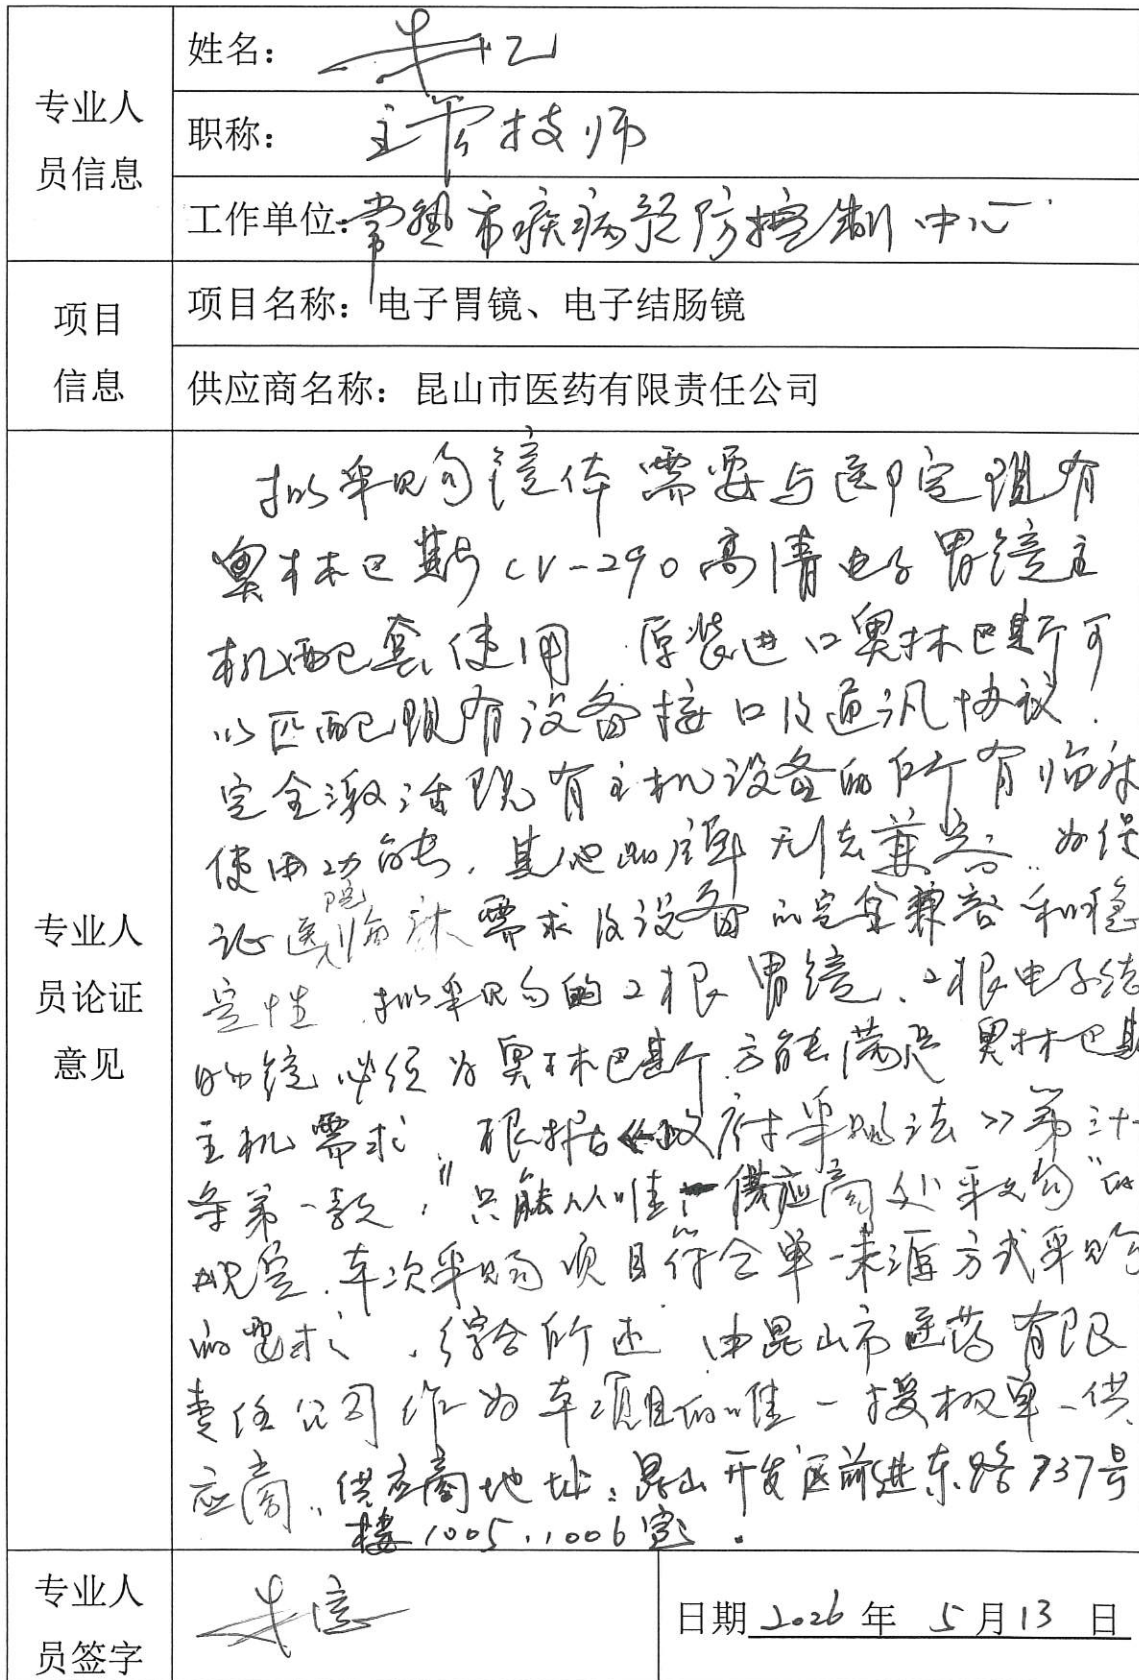 专业人
员信息
姓名：朱忆
职称：主管技师
工作单位：常熟市疾病预防控制中心
项目
信息
项目名称：电子胃镜、电子结肠镜
供应商名称：昆山市医药有限责任公司
专业人
员论证
意见
拟采购镜体需要与医院现有
奥林巴斯CV-290高清电子胃镜主
机配套使用 原装进口奥林巴斯可
以匹配现有设备接口及通讯协议.
完全激活现有主机设备的所有临床
使用功能，其他品牌无法兼容。为保
证医院临床需求及设备的完全兼容和稳
定性 拟采购的2根胃镜、2根电子结
肠镜必须为奥林巴斯方能满足奥林巴斯
主机需求，根据《政府采购法》第三十一
条第一款，"只能从唯一供应商处采购"的
规定，本次采购项目符合单一来源方式采购
的要求，综合所述 由昆山市医药有限
责任公司作为本项目的唯一授权单一供
应商。供应商地址：昆山开发区前进东路737号
楼1005、1006室.
专业人
员签字
朱忆
日期 2026 年 5 月 13 日